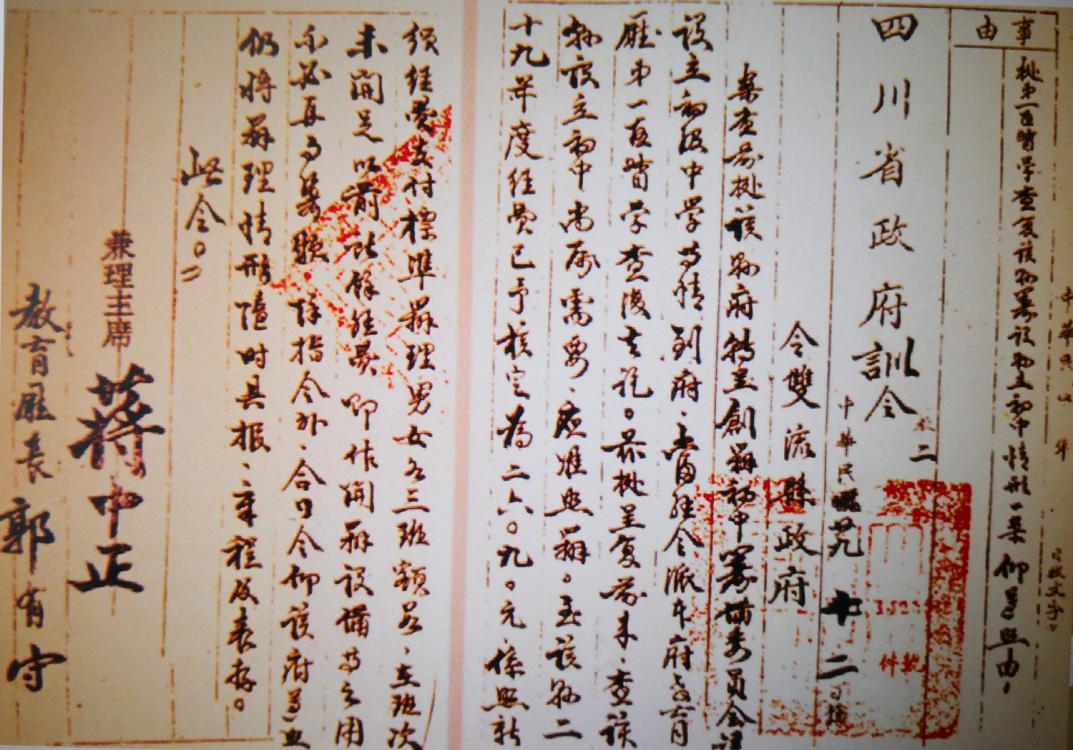 事由
據第一區督學查复該縣籌設縣立初中情形一案仰遵照由、
四川省政府訓令
二
中華民國 廿九 十二
件 號
令雙流縣政府
案查前據該縣府轉呈創辦初中籌備委員會請
設立初級中學等情到府、當經令派本府教育
廳第一區督學查復去訖。茲據呈复前來、查該
縣設立初中尚屬需要、應准照辦。至該縣二
十九年度經費已予核定為二六〇九〇元係照新
頒經費支付標準辦理男女各三班額爲、在班次
未開足以前 餘經費 即作開辦設備等之用
不必再 籌縣、除指令外、合行令仰該府遵照
仍將辦理情形隨時具報、章程及表存。
此令。
兼理主席 蔣中正
教育廳長 郭有守